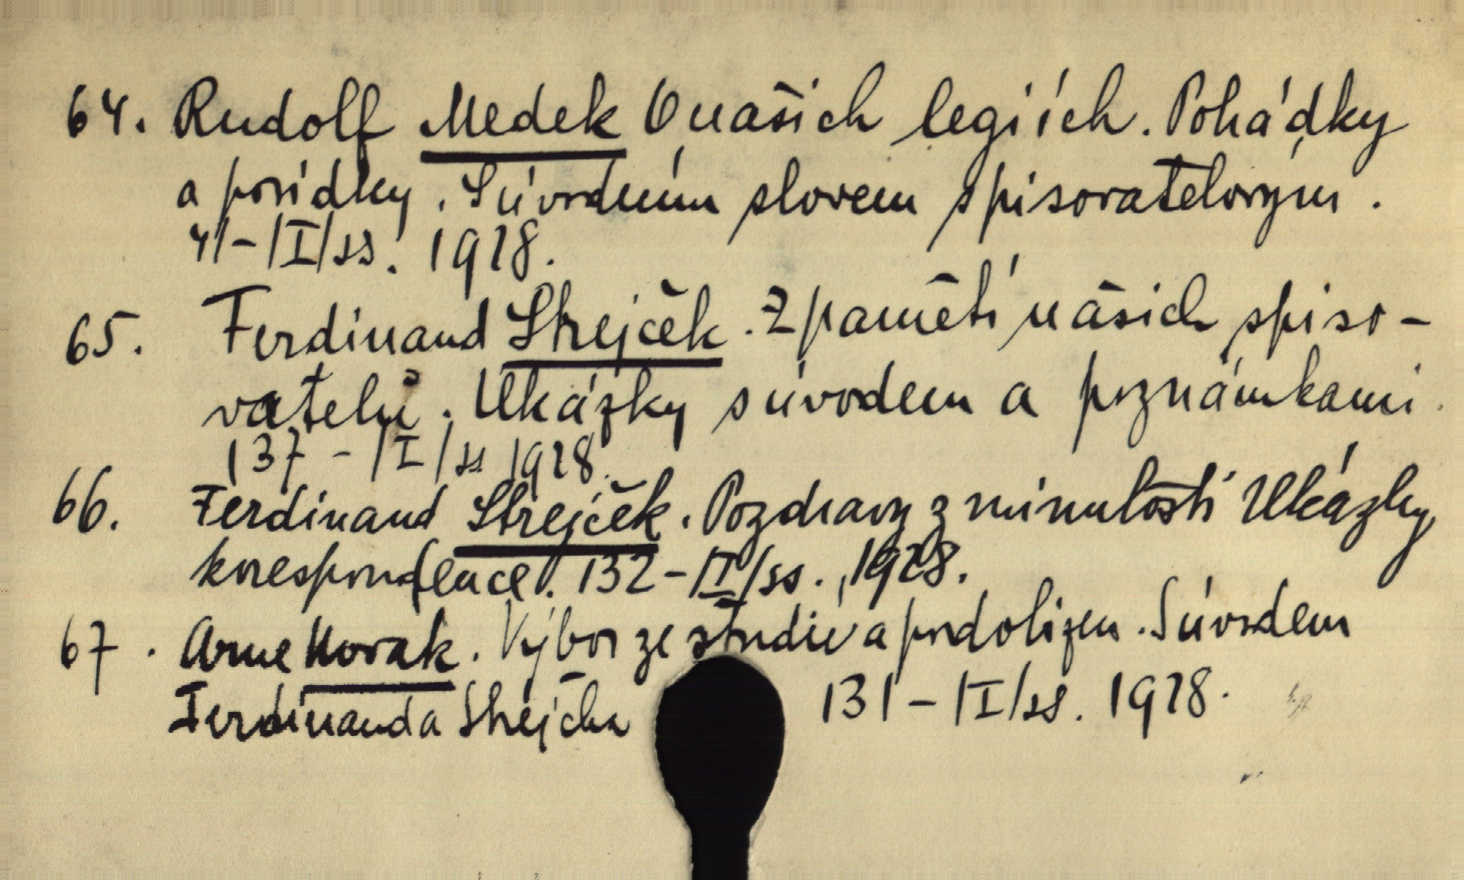 64. Rudolf Medek O našich legiích. Pohádky
a povídky. S úvodním slovem spisovatelovým.
41-|I|ss. 1928.
65. Ferdinand Strejček. Z pamětí našich spiso-
vatelů. Ukázky s úvodem a poznámkami.
137-|I|ss 1928.
66. Ferdinand Strejček. Pozdravy z minulosti Ukázky
korespondence. 132-|I|ss., 1928.
67. Arne Novak. Výbor ze studií a podobizen. S úvodem
Ferdinanda Strejčka 131-|I|ss. 1928.